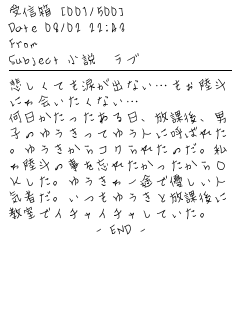 受信箱 [001/500]
Date 08/02 22:48
From
Subject 小説 ラブ
悲しくても涙が出ない…もお陸斗
にわ会いたくない…
何日かたったある日、放課後、男
子のゆうきってゆう人に呼ばれた
。ゆうきからコクられたのだ。私
わ陸斗の事を忘れたかったからO
Kした。ゆうきわ一途で優しい人
気者だ。いつもゆうきと放課後に
教室でイチャイチャしていた。
- END -